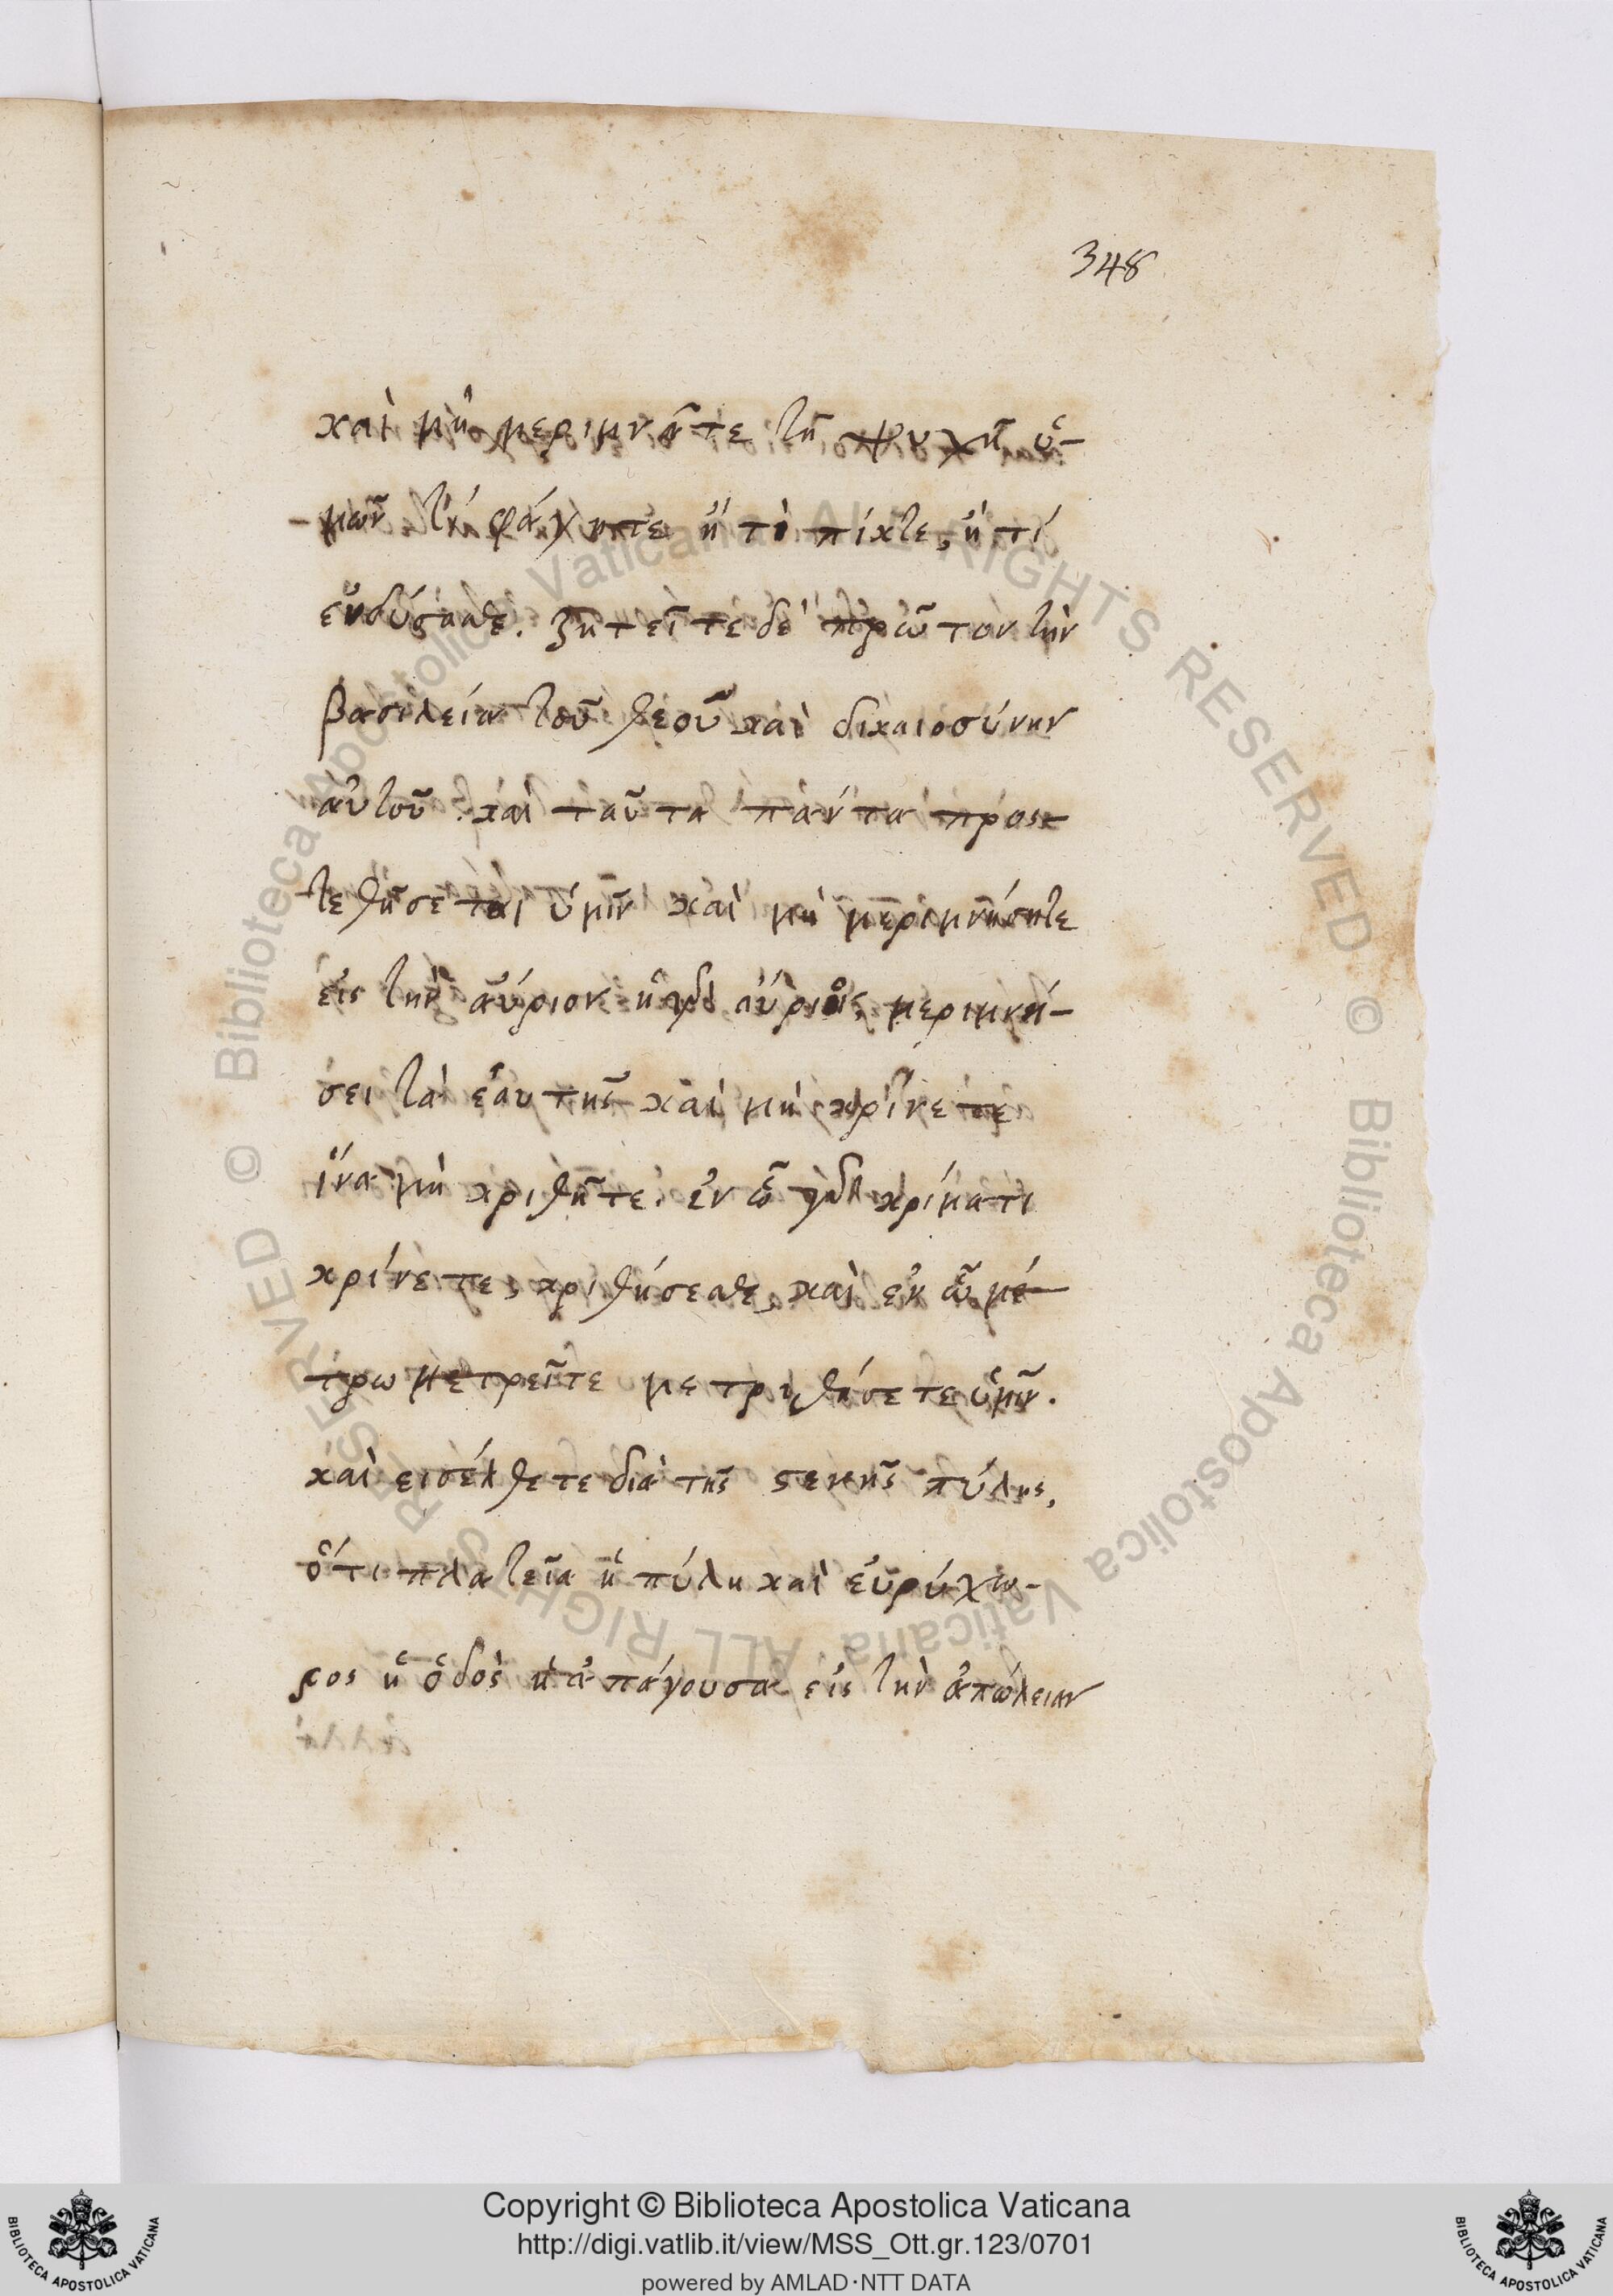 348
καὶ μὴ μεριμνᾶτε τῇ ψυχῇ ὑ-
-μῶν τί φάγητε ἢ τὶ πίητε, ἢ τί
ἐνδύσασθε. ζητεῖτε δὲ πρῶτον τὴν
βασιλείαν τοῦ θεοῦ καὶ δικαιοσύνην
αὐτοῦ. καὶ ταῦτα πάντα προσ-
τεθῆσεται ὑμῖν καὶ μὴ μεριμνήσητε
εἰς τὴν αὔριον ἡ γὰρ αὔριον, μεριμνή-
σει τὰ ἑαυτῆς καὶ μὴ κρίνετε
ἵνα μὴ κριθῆτε. ἐν ᾧ γὰρ κρίματι
κρίνετε, κριθήσεσθε, καὶ ἐν ᾧ μέ-
τρω μετρεῖτε μετριθήσετε ὑμῖν.
καὶ εισέλθετε διὰ τῆς στενῆς πύλης,
ὅτι πλατεῖα ἡ πύλη καὶ εὐρύχω-
ρος ἡ ὁδὸς ἡ ἀπάγουσα εἰς τὴν ἀπώλειαν
Copyright © Biblioteca Apostolica Vaticana
http://digi.vatlib.it/view/MSS_Ott.gr.123/0701
powered by AMLAD·NTT DATA
BIBLIOTECA APOSTOLICA VATICANA
BIBLIOTECA APOSTOLICA VATICANA
© Biblioteca Apostolica Vaticana ALL RIGHTS RESERVED © Biblioteca Apostolica Vaticana ALL RIGHTS RESERVED